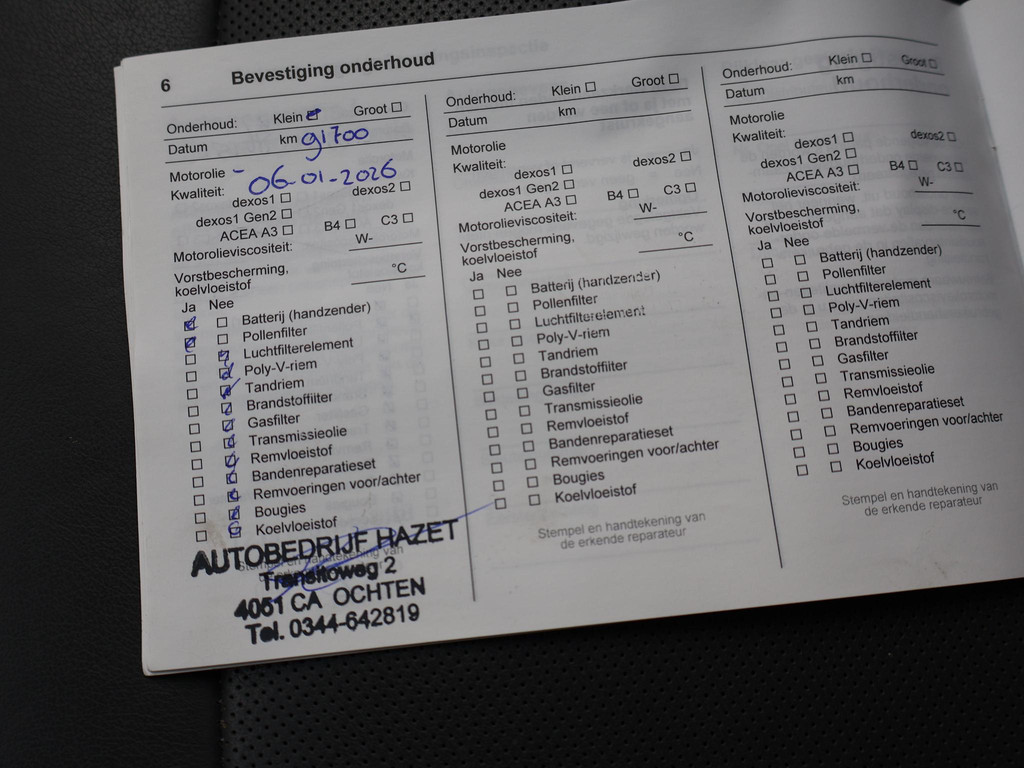 6 Bevestiging onderhoud
Onderhoud: Klein Groot
Datum km 91700
Motorolie
06-01-2026
Kwaliteit:
dexos1 dexos2
dexos1 Gen2
ACEA A3 B4 C3
Motorolieviscositeit: W-
Vorstbescherming,
koelvloeistof °C
Ja Nee
Batterij (handzender)
Pollenfilter
Luchtfilterelement
Poly-V-riem
Tandriem
Brandstoffilter
Gasfilter
Transmissieolie
Remvloeistof
Bandenreparatieset
Remvoeringen voor/achter
Bougies
Koelvloeistof
AUTOBEDRIJF HAZET
Transitoweg 2
4051 CA OCHTEN
Tel. 0344-642819
Onderhoud: Klein Groot
Datum km
Motorolie
Kwaliteit:
dexos1 dexos2
dexos1 Gen2
ACEA A3 B4 C3
Motorolieviscositeit: W-
Vorstbescherming,
koelvloeistof °C
Ja Nee
Batterij (handzender)
Pollenfilter
Luchtfilterelement
Poly-V-riem
Tandriem
Brandstoffilter
Gasfilter
Transmissieolie
Remvloeistof
Bandenreparatieset
Remvoeringen voor/achter
Bougies
Koelvloeistof
Stempel en handtekening van
de erkende reparateur
Onderhoud: Klein Groot
Datum km
Motorolie
Kwaliteit:
dexos1 dexos2
dexos1 Gen2
ACEA A3 B4 C3
Motorolieviscositeit: W-
Vorstbescherming,
koelvloeistof °C
Ja Nee
Batterij (handzender)
Pollenfilter
Luchtfilterelement
Poly-V-riem
Tandriem
Brandstoffilter
Gasfilter
Transmissieolie
Remvloeistof
Bandenreparatieset
Remvoeringen voor/achter
Bougies
Koelvloeistof
Stempel en handtekening van
de erkende reparateur